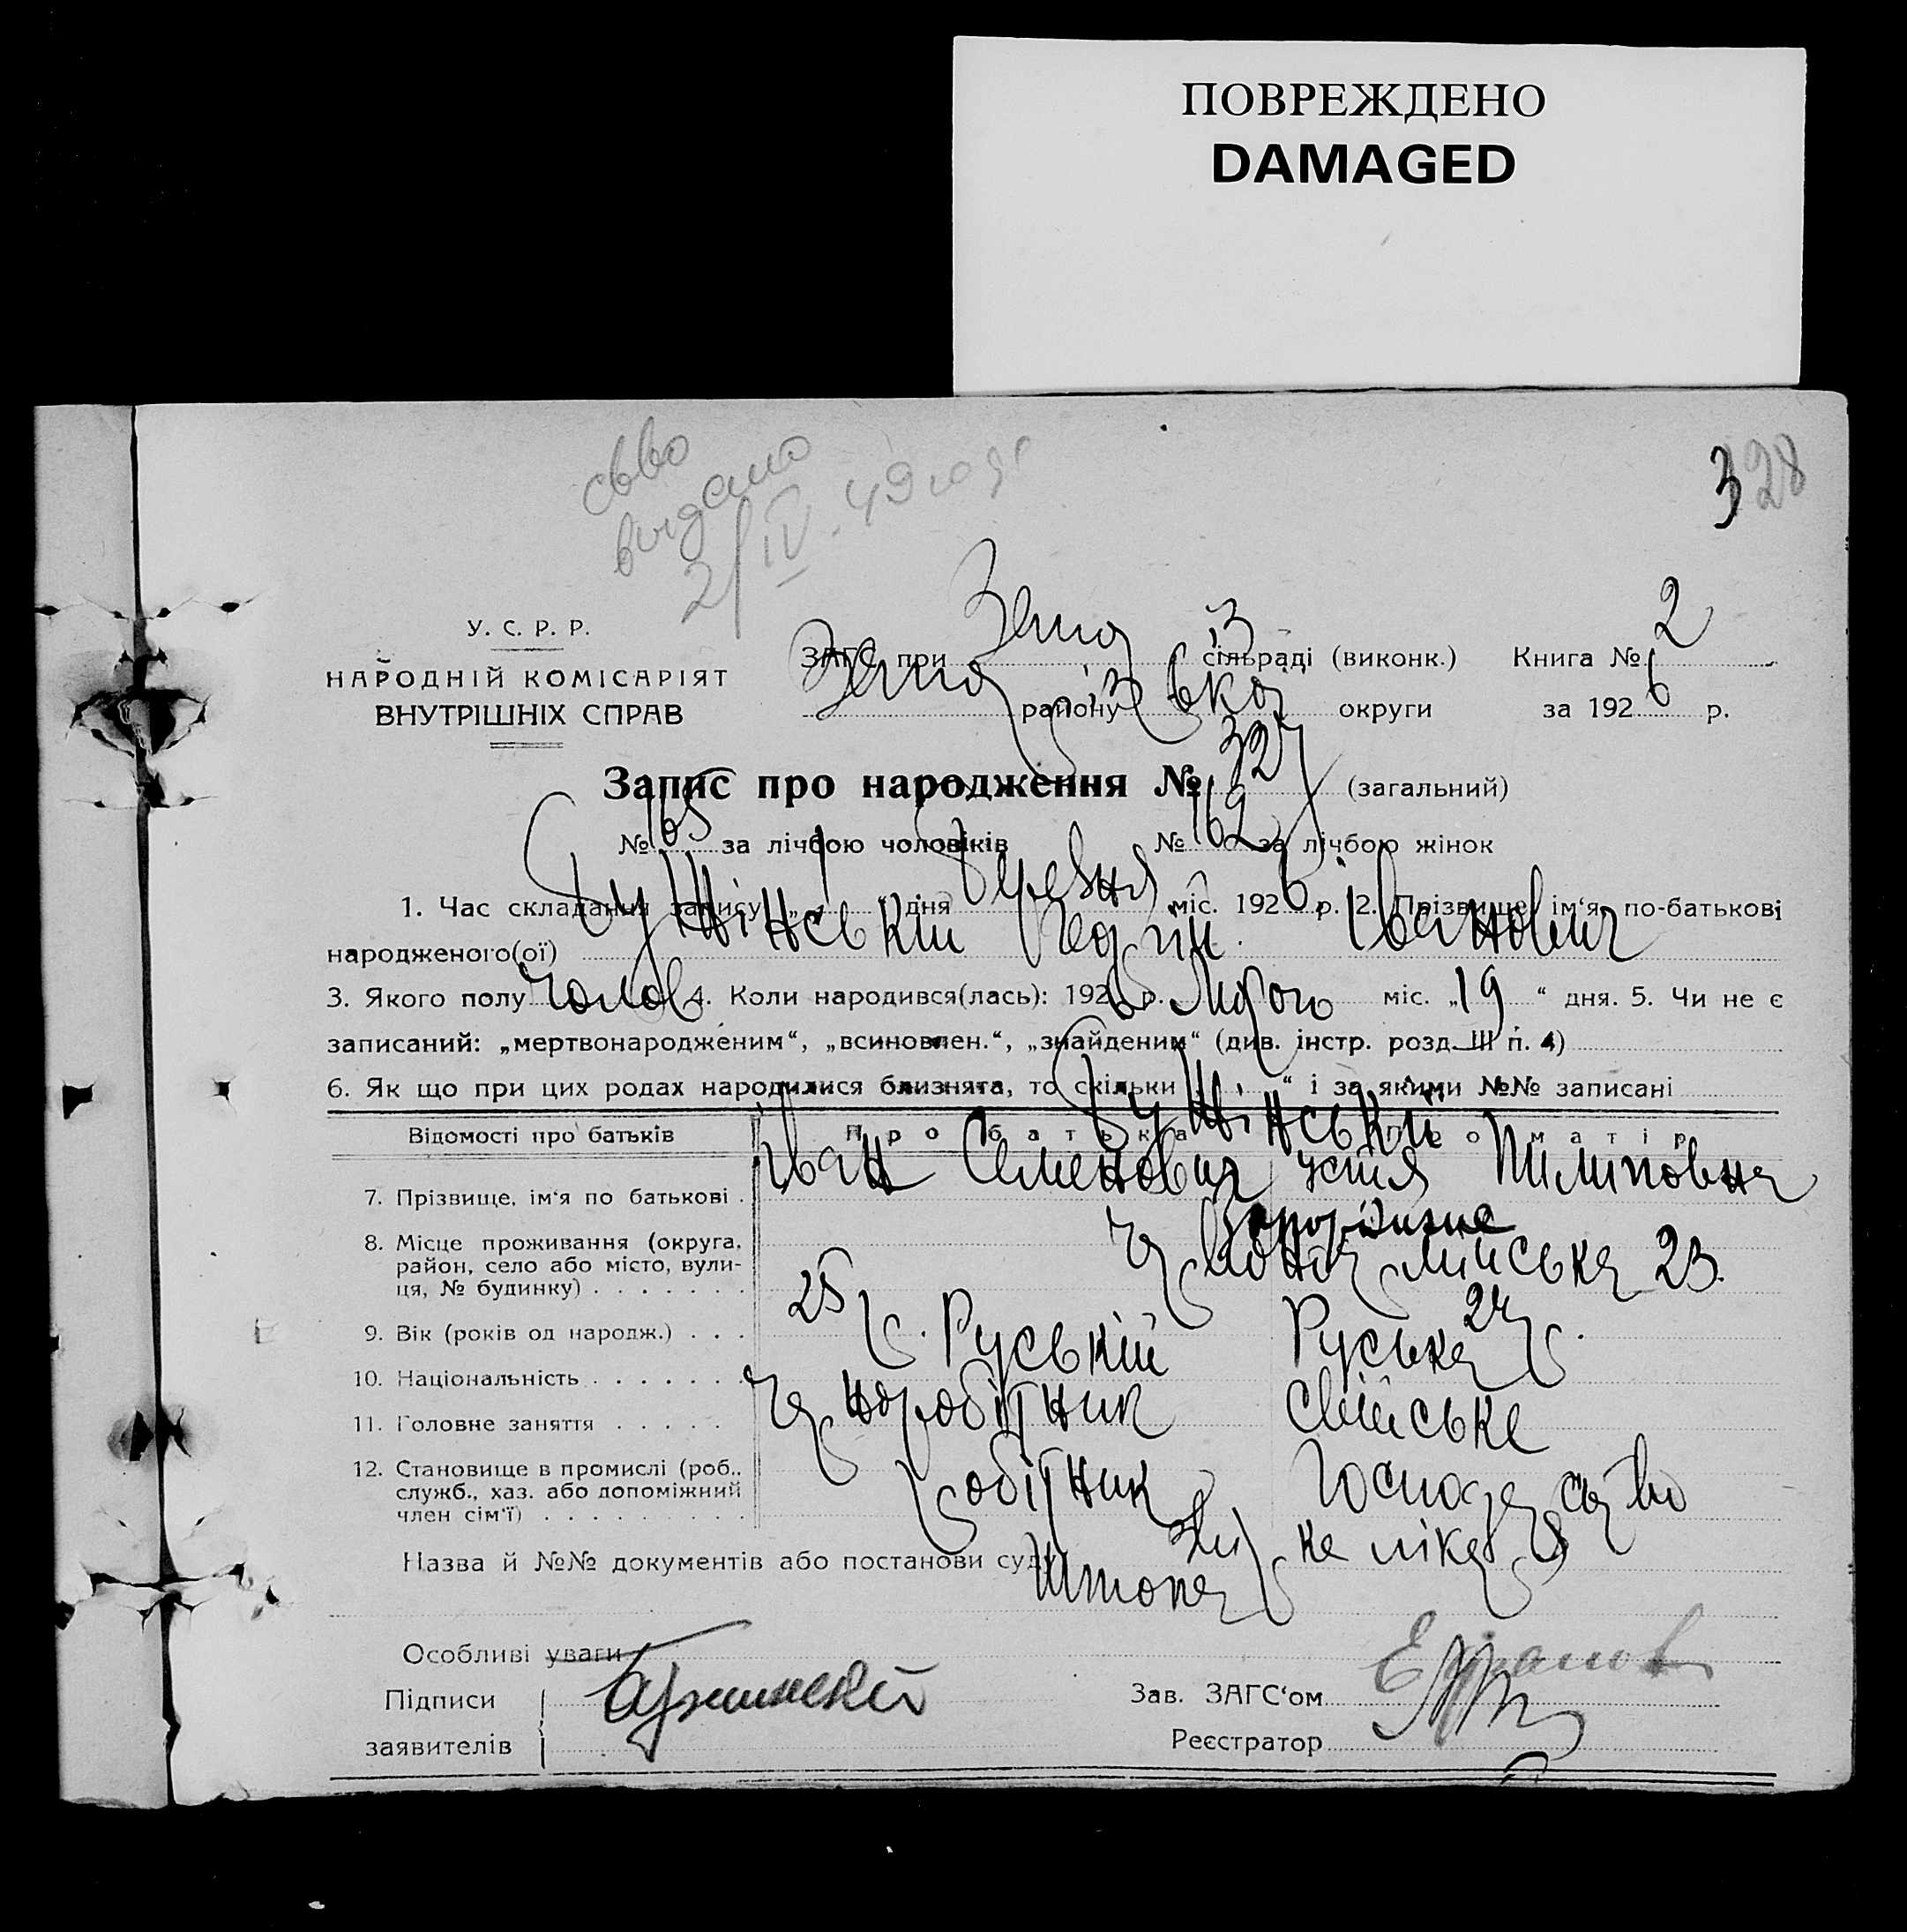 ПОВРЕЖДЕНО
DAMAGED
328
видано
2/IV-49
У. С. Р. Р.
НАРОДНІЙ КОМІСАРІЯТ
ВНУТРІШНІХ СПРАВ
ЗАГС при Запоріз сільраді (виконк.) Книга № 2
Запоріз району ької округи за 1926 р.
Запис про народження № 327 (загальний)
№ 165 за лічбою чоловіків № 162 за лічбою жінок
1. Час складання запису „1“ дня березня міс. 1926 р. 2. Прізвище, ім‘я, по-батькові
народженого(ої) Бужінський Іванович
3. Якого полу чолов 4. Коли народився(лась): 1926 р. Лютого міс. „19“ дня. 5. Чи не є
записаний: „мертвонародженим“, „всиновлен.“, „знайденим“ (див. інстр. розд. III п. 4)
6. Як що при цих родах народилися близнята, то скільки „ “ і за якими №№ записані
Відомості про батьків Про батька Про матір
Бужінський
7. Прізвище, ім‘я по батькові . Іван Семенович Устя Пиліповна
8. Місце проживання (округа, район, село або місто, вулиця, № будинку) . . . . . . . Запоріжжя
23.
9. Вік (років од народж.) . . . 25 р. 24 р.
10. Національність . . . . . . Руській Руська
11. Головне заняття . . . . . чорноробітник сільське
12. Становище в промислі (роб., служб., хаз. або допоміжний член сім‘ї) . . . . . . . . . робітник господарство
Назва й №№ документів або постанови суду лікаря
Особливі уваги
Підписи Бужинский Зав. ЗАГС‘ом
заявителів Реєстратор